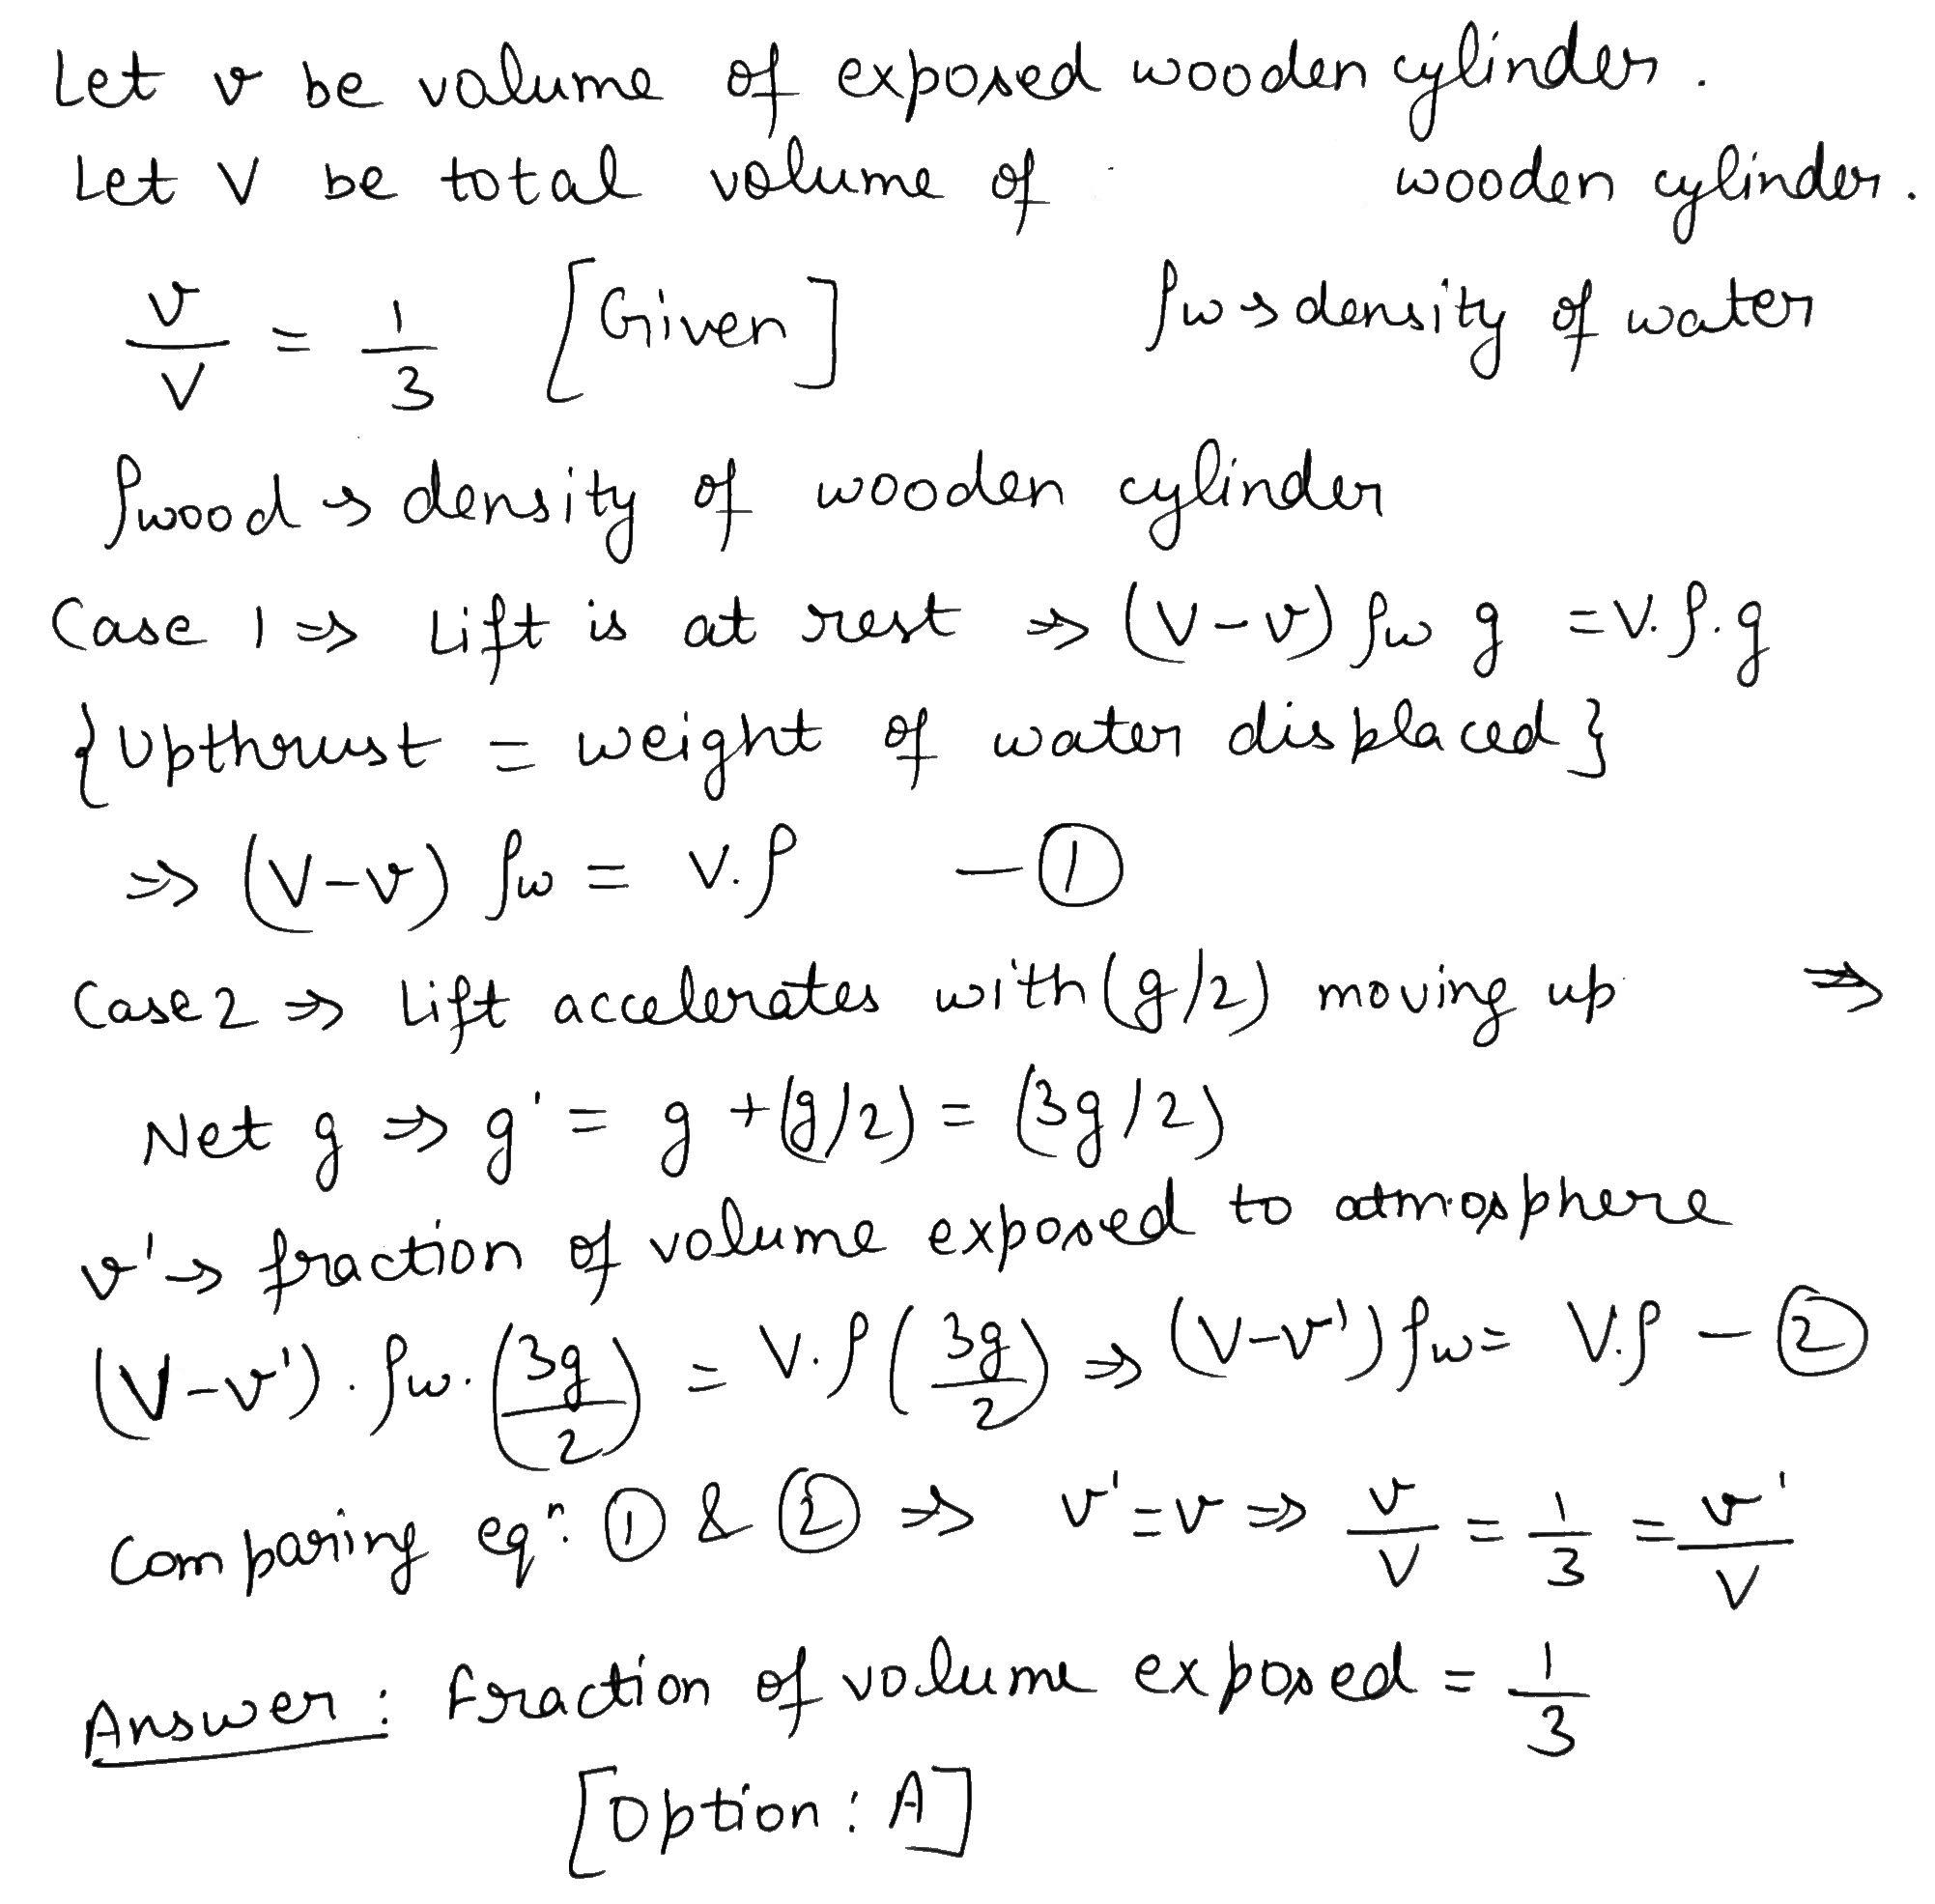 Let v be volume of exposed wooden cylinder.
Let V be total volume of wooden cylinder.
v/V = 1/3 [Given] ρw → density of water
ρwood → density of wooden cylinder
Case 1 ⇒ Lift is at rest ⇒ (V-v) ρw g = V.ρ.g
{Upthrust = weight of water displaced}
⇒ (V-v) ρw = V.ρ - ①
Case 2 ⇒ Lift accelerates with (g/2) moving up ⇒
Net g ⇒ g' = g + (g/2) = (3g/2)
v' → fraction of volume exposed to atmosphere
(V-v'). ρw. (3g/2) = V.ρ (3g/2) ⇒ (V-v') ρw = V.ρ - ②
Comparing eqⁿ: ① & ② ⇒ v' = v ⇒ v/V = 1/3 = v'/V
Answer: Fraction of volume exposed = 1/3
[Option: A]